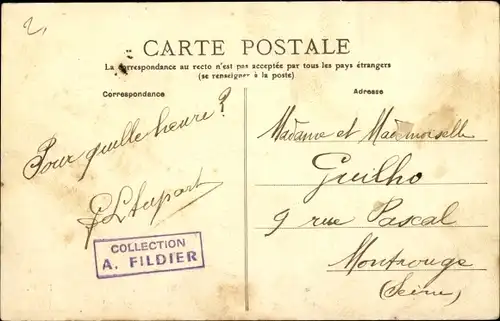 2,
CARTE POSTALE
La correspondance au recto n'est pas acceptée par tous les pays étrangers
(se renseigner à la poste)
Correspondance
Adresse
Pour quelle heure ?
COLLECTION
A. FILDIER
Madame et Mademoiselle
Guilho
9 rue Pascal
Montrouge
(Seine)